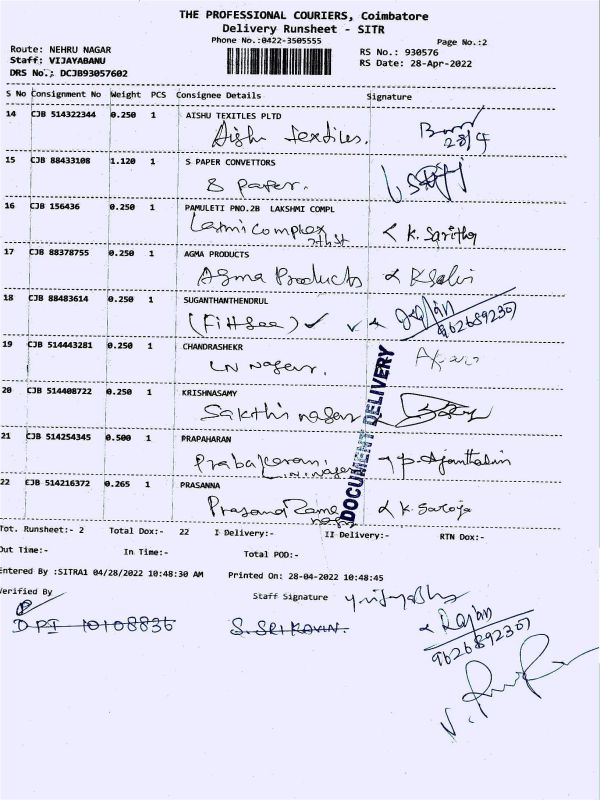 THE PROFESSIONAL COURIERS, Coimbatore
Delivery Runsheet - SITR
Phone No.:0422-3505555
Page No.:2
Route: NEHRU NAGAR
RS No.: 930576
Staff: VIJAYABANU
RS Date: 28-Apr-2022
DRS No.: DCJB93057602
S No Consignment No Weight PCS Consignee Details Signature
14 CJB 514322344 0.250 1 AISHU TEXITLES PLTD
Aishu textiles.
28/4
15 CJB 88433108 1.120 1 S PAPER CONVETTORS
S paper.
16 CJB 156436 0.250 1 PAMULETI PNO.2B LAKSHMI COMPL
Laxmi Complex
7th st
K. Saritha
17 CJB 88378755 0.250 1 AGMA PRODUCTS
Agma Products
18 CJB 88483614 0.250 1 SUGANTHANTHENDRUL
(Fittsee) ✓
Rajan
9626892307
19 CJB 514443281 0.250 1 CHANDRASHEKR
LN nagar.
20 CJB 514408722 0.250 1 KRISHNASAMY
Sakthi nagar
21 CJB 514254345 0.500 1 PRAPAHARAN
Prabakaran
L.N.nagar
22 CJB 514216372 0.265 1 PRASANNA
Prasana Rame
nagar
K. Saroja
DOCUMENT DELIVERY
Tot. Runsheet:- 2 Total Dox:- 22 I Delivery:- II Delivery:- RTN Dox:-
Out Time:- In Time:- Total POD:-
Entered By :SITRA1 04/28/2022 10:48:30 AM Printed On: 28-04-2022 10:48:45
Verified By
Staff Signature
DPI 10108836
S. SRIKOVIN.
Rajan
9626892307